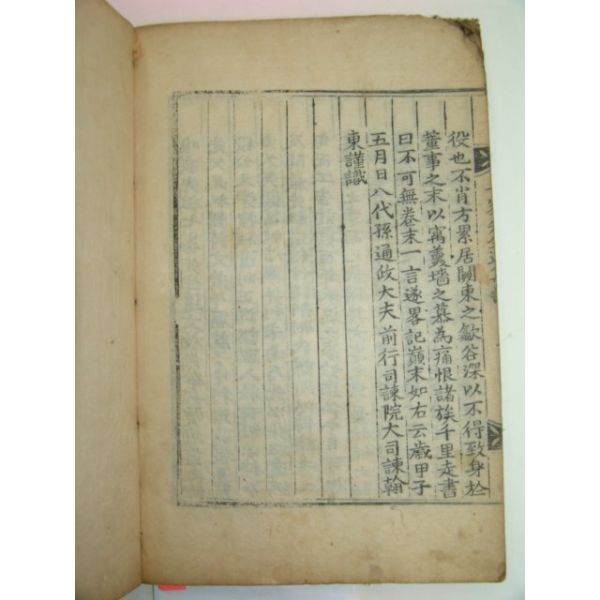 役也不肖方累居關東之歙谷深以不得致身於
董事之末以寓羹墻之慕為痛恨諸族千里走書
曰不可無卷末一言遂畧記巓末如右云歲甲子
五月日八代孫通政大夫前行司諫院大司諫翰
東謹識